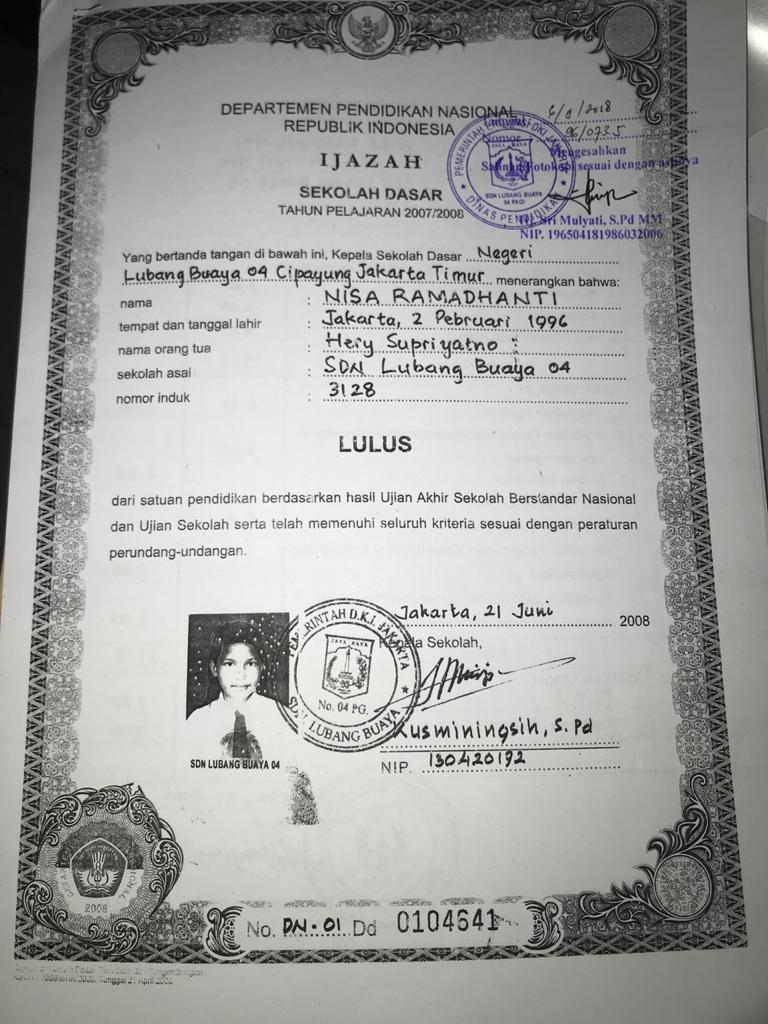 DEPARTEMEN PENDIDIKAN NASIONAL
REPUBLIK INDONESIA
IJAZAH
SEKOLAH DASAR
TAHUN PELAJARAN 2007/2008
6/9/2018
Nomor 96/0735
Mengesahkan
sesuai dengan aslinya
Sri Mulyati, S.Pd MM
NIP. 196504181986032006
PEMERINTAH PROVINSI DKI
JAYA RAYA
SDN LUBANG BUAYA
04 PAGI
DINAS PENDIDIKAN
Yang bertanda tangan di bawah ini, Kepala Sekolah Dasar Negeri
Lubang Buaya 04 Cipayung Jakarta Timur menerangkan bahwa:
nama : NISA RAMADHANTI
tempat dan tanggal lahir : Jakarta, 2 Pebruari 1996
nama orang tua : Hery Supriyatno
sekolah asal : SDN Lubang Buaya 04
nomor induk : 3128
LULUS
dari satuan pendidikan berdasarkan hasil Ujian Akhir Sekolah Berstandar Nasional
dan Ujian Sekolah serta telah memenuhi seluruh kriteria sesuai dengan peraturan
perundang-undangan.
Jakarta, 21 Juni 2008
Kepala Sekolah,
PEMERINTAH D.K.I. JAKARTA
JAYA RAYA
No. 04 PG.
SDN LUBANG BUAYA
Kusminingsih, S.Pd
NIP. 130420192
SDN LUBANG BUAYA 04
2008
No. DN-01 Dd 0104641